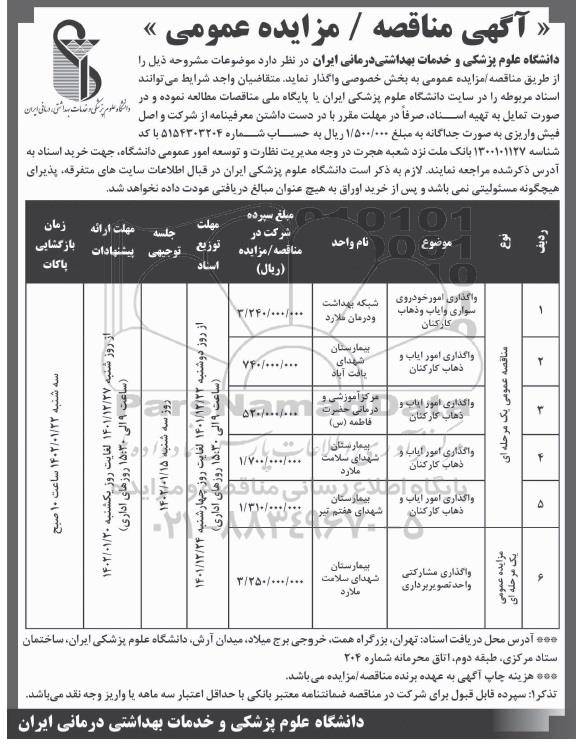 « آگهی مناقصه / مزایده عمومی »
دانشگاه علوم پزشکی و خدمات بهداشتی درمانی ایران
دانشگاه علوم پزشکی و خدمات بهداشتی‌درمانی ایران در نظر دارد موضوعات مشروحه ذیل را
از طریق مناقصه/مزایده عمومی به بخش خصوصی واگذار نماید. متقاضیان واجد شرایط می‌توانند
اسناد مربوطه را در سایت دانشگاه علوم پزشکی ایران یا پایگاه ملی مناقصات مطالعه نموده و در
صورت تمایل به تهیه اسـناد، صرفاً در مهلت مقرر با در دست داشتن معرفینامه از شرکت و اصل
فیش واریزی به صورت جداگانه به مبلغ ۱/۵۰۰/۰۰۰ ریال به حساب شماره ۵۱۵۴۳۰۳۲۰۴ با کد
شناسه ۱۳۰۰۱۰۱۱۲۷ بانک ملت نزد شعبه هجرت در وجه مدیریت نظارت و توسعه امور عمومی دانشگاه، جهت خرید اسناد به
آدرس ذکرشده مراجعه نمایند. لازم به ذکر است دانشگاه علوم پزشکی ایران در قبال اطلاعات سایت های متفرقه، پذیرای
هیچگونه مسئولیتی نمی باشد و پس از خرید اوراق به هیچ عنوان مبالغ دریافتی عودت داده نخواهد شد.
ردیف
نوع
موضوع
نام واحد
مبلغ سپرده شرکت در مناقصه/مزایده (ریال)
مهلت توزیع اسناد
جلسه توجیهی
مهلت ارائه پیشنهادات
زمان بازگشایی پاکات
مناقصه عمومی یک مرحله ای
۱
واگذاری امورخودروی سواری وایاب وذهاب کارکنان
شبکه بهداشت ودرمان ملارد
۳/۲۴۰/۰۰۰/۰۰۰
۲
واگذاری امور ایاب و ذهاب کارکنان
بیمارستان شهدای یافت آباد
۷۴۰/۰۰۰/۰۰۰
۳
واگذاری امور ایاب و ذهاب کارکنان
مرکزآموزشی و درمانی حضرت فاطمه (س)
۵۲۰/۰۰۰/۰۰۰
۴
واگذاری امور ایاب و ذهاب کارکنان
بیمارستان شهدای سلامت ملارد
۱/۷۰۰/۰۰۰/۰۰۰
۵
واگذاری امور ایاب و ذهاب کارکنان
بیمارستان شهدای هفتم تیر
۱/۳۱۰/۰۰۰/۰۰۰
۶
مزایده عمومی یک مرحله ای
واگذاری مشارکتی واحدتصویربرداری
بیمارستان شهدای سلامت ملارد
۳/۲۵۰/۰۰۰/۰۰۰
از روز دوشنبه ۱۴۰۱/۱۲/۲۲ لغایت روز چهارشنبه ۱۴۰۱/۱۲/۲۴
(ساعت ۹ الی ۱۵:۳۰ روزهای اداری)
روز سه شنبه ۱۴۰۲/۰۱/۱۵
از روز شنبه ۱۴۰۱/۱۲/۲۷ لغایت روز یکشنبه ۱۴۰۲/۰۱/۲۰
(ساعت ۹ الی ۱۵:۳۰ روزهای اداری)
سه شنبه ۱۴۰۲/۰۱/۲۲ ساعت ۱۰ صبح
ParsNamadData
پایگاه اطلاع رسانی مناقصه و مزایده
۰۲۱-۸۸۳۴۹۶۷۰-۵
*** آدرس محل دریافت اسناد: تهران، بزرگراه همت، خروجی برج میلاد، میدان آرش، دانشگاه علوم پزشکی ایران، ساختمان
ستاد مرکزی، طبقه دوم، اتاق محرمانه شماره ۲۰۴
*** هزینه چاپ آگهی به عهده برنده مناقصه/مزایده می‌باشد.
تذکر۱: سپرده قابل قبول برای شرکت در مناقصه ضمانتنامه معتبر بانکی با حداقل اعتبار سه ماهه یا واریز وجه نقد می‌باشد.
دانشگاه علوم پزشکی و خدمات بهداشتی درمانی ایران